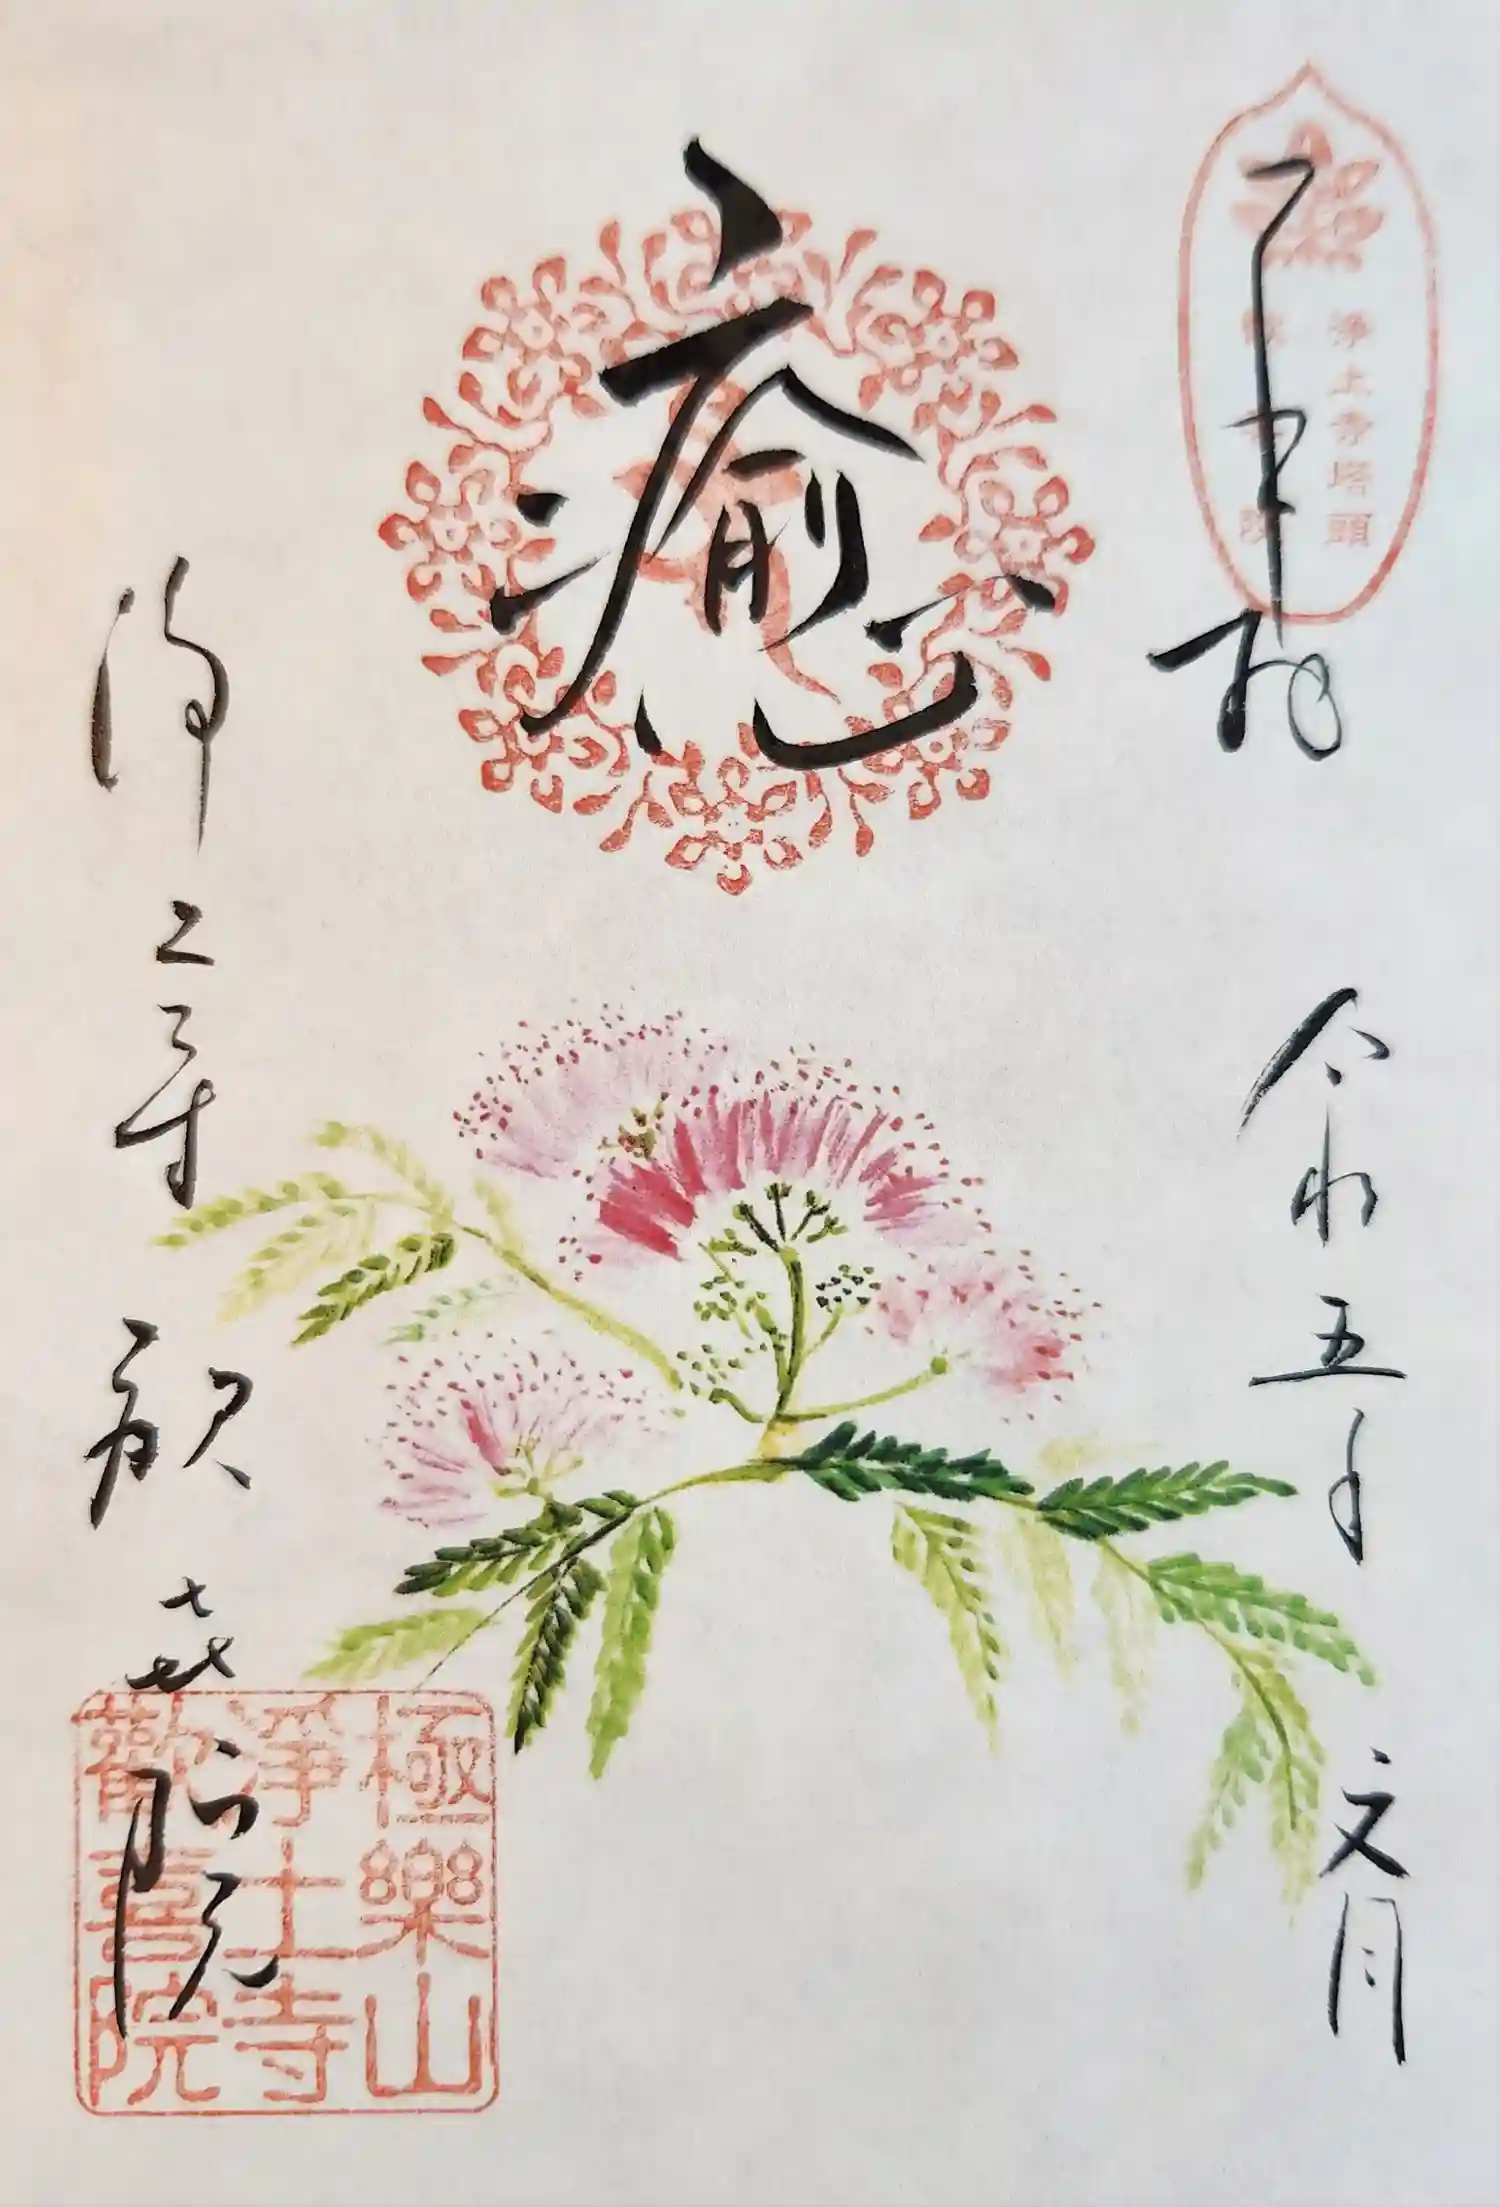 奉拝
浄土寺塔頭
歓喜院
令和五年 文月
癒
浄土寺 歓喜院
極樂山
淨土寺
歡喜院